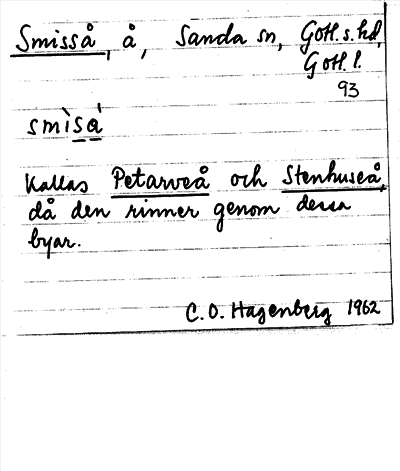 Smisså, å, Sanda sn, Gotl. s. hd,
Gotl. l.
93
smìsa̍
Kallas Petarveå och Stenhuseå,
då den rinner genom dessa
byar.
C. O. Hagenberg 1962